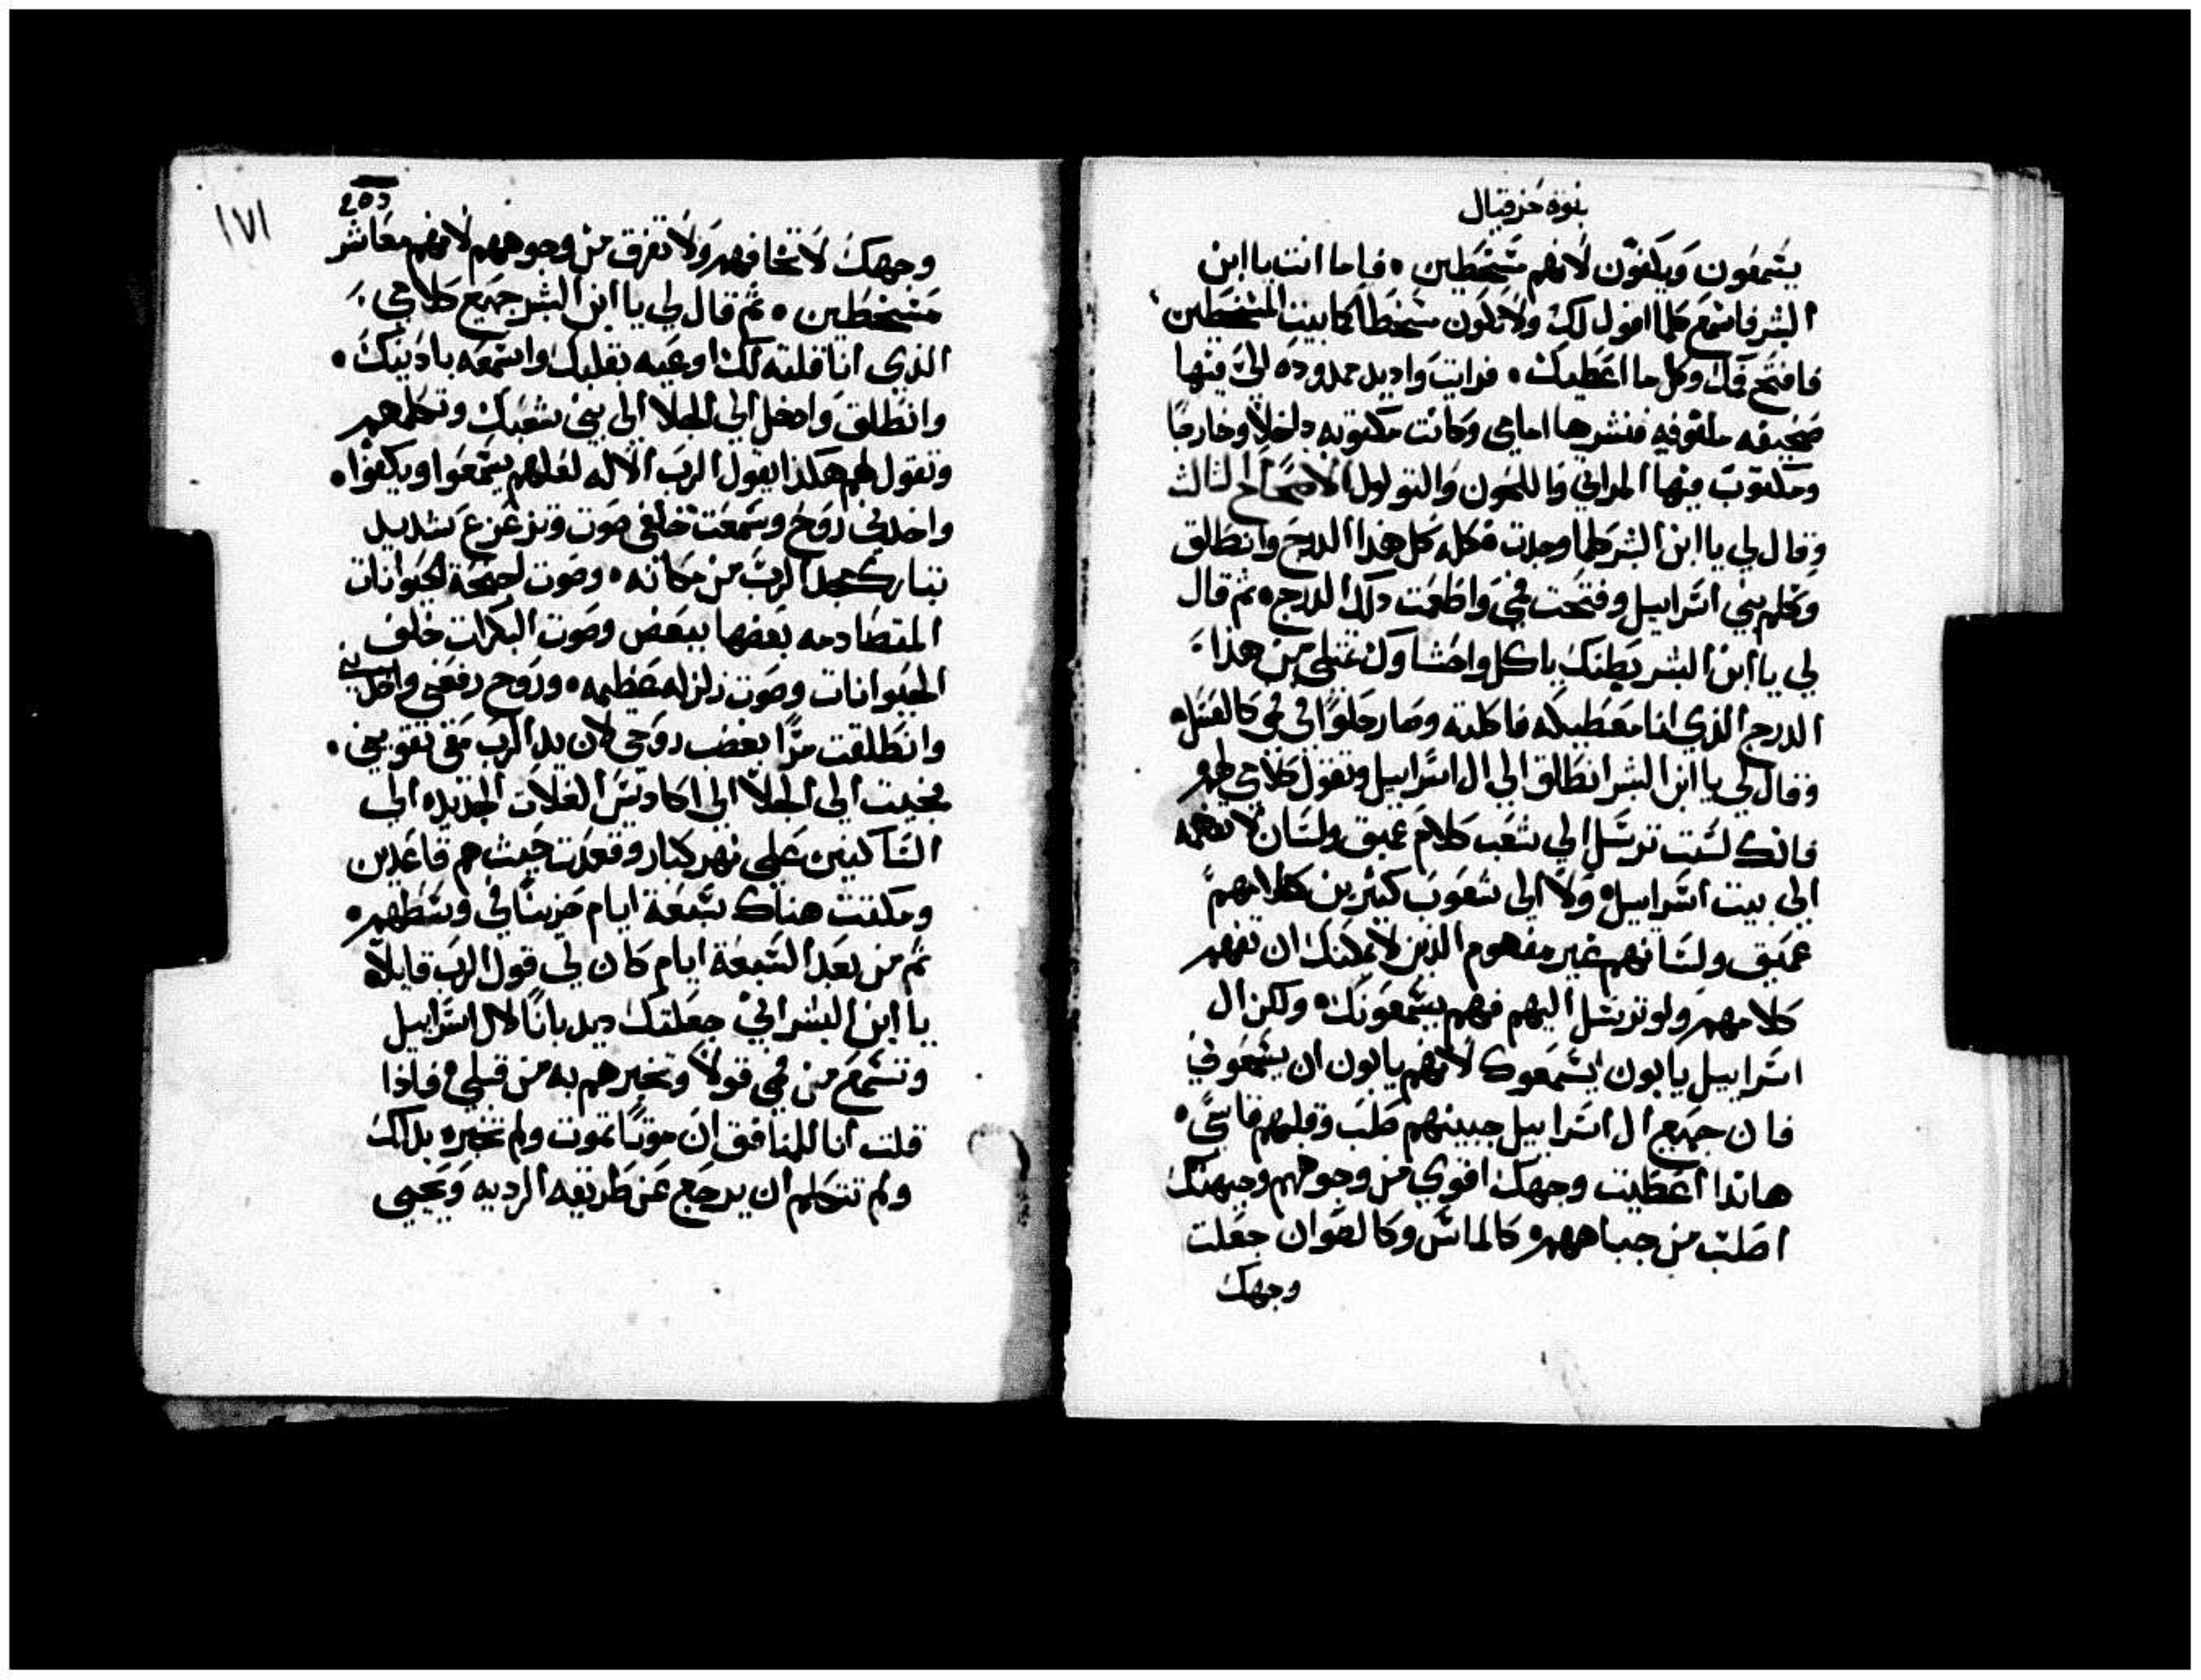 نبوة حزقيال
يسمعون ويكفون لانهم مسخطين . فاما انت يا ابن
البشر فاسمع كلما اقول لك ولا تكون مسخطا كما بيت المسخطين
فافتح فمك وكل ما اعطيك . فرايت واد يد ممدوده الي فيها
صحيفه ملفوفه فنشرها امامي وكانت مكتوبه داخلا وخارجا
ومكتوب فيها المراثي واللحون والتولول الاصحاح الثالث
وقال لي يا ابن البشر كلما وجدت فكله كل هذا الدرج وانطلق
وكلم بني اسراييل وفتحت فمي واطعمت دلك الدرج ثم قال
لي يا ابن البشر بطنك ياكل واحشاوك تمتلي من هذا
الدرج الذي انا معطيكه فاكلته وصار حلوا في فمي كالعسل
وقال لي يا ابن البشر انطلق الي ال اسراييل وتقول كلامي لهم
فانك لست ترسل الي شعب كلام عميق ولسان لا تفهمه
الي بيت اسراييل ولا الي شعوب كثيرين كلامهم
عميق ولسانهم غير مفهوم الذين لا يمكنك ان تفهم
كلامهم ولو ترسل اليهم فهم يسمعونك ولكن ال
اسراييل يابون يسمعوك لانهم يابون ان يسمعوني
فان جميع ال اسراييل جبينهم صلب وقلبهم قاسي
هاندا اعطيت وجهك اقوي من وجوههم وجبهتك
اصلب من جباههم كالماس وكالصوان جعلت
وجهك
١٧١
وجهك لا تخافهم ولا تفرق من وجوههم لانهم معاشر
مسخطين . ثم قال لي يا ابن البشر جميع كلامي
الذي انا قلته لك اوعيه بقلبك واسمعه بادنيك .
وانطلق وادخل الي الجلا الي بني شعبك وتكلمهم
وتقول لهم هكذا يقول الرب الاله لعلهم يسمعوا ويكفوا .
واخدني روح وسمعت خلفي صوت وتزعزع شديد
تبارك مجد الرب من مكانه . وصوت اجنحة الحيوانات
المتصادمه بعضها ببعض وصوت البكرات خلف
الحيوانات وصوت زلزله عظيمه . وروح رفعني واخدني
وانطلقت مرا بغضب روحي لان يد الرب معي تقويني .
فجيت الي الجلا الي اكاديس الغلات الجديده الي
الساكنين علي نهر كبار وقعدت حيث هم قاعدين
ومكثت هناك سبعة ايام حزينا في وسطهم
ثم من بعد السبعة ايام كان لي قول الرب قايلا
يا ابن البشر اني جعلتك ديدبانا لال اسراييل
وتسمع من فمي قولا وتخبرهم به من قبلي فاذا
قلت انا للمنافق ان موتا تموت ولم تخبره بذلك
ولم تتكلم ان يرجع عن طريقه الرديه ويحيي